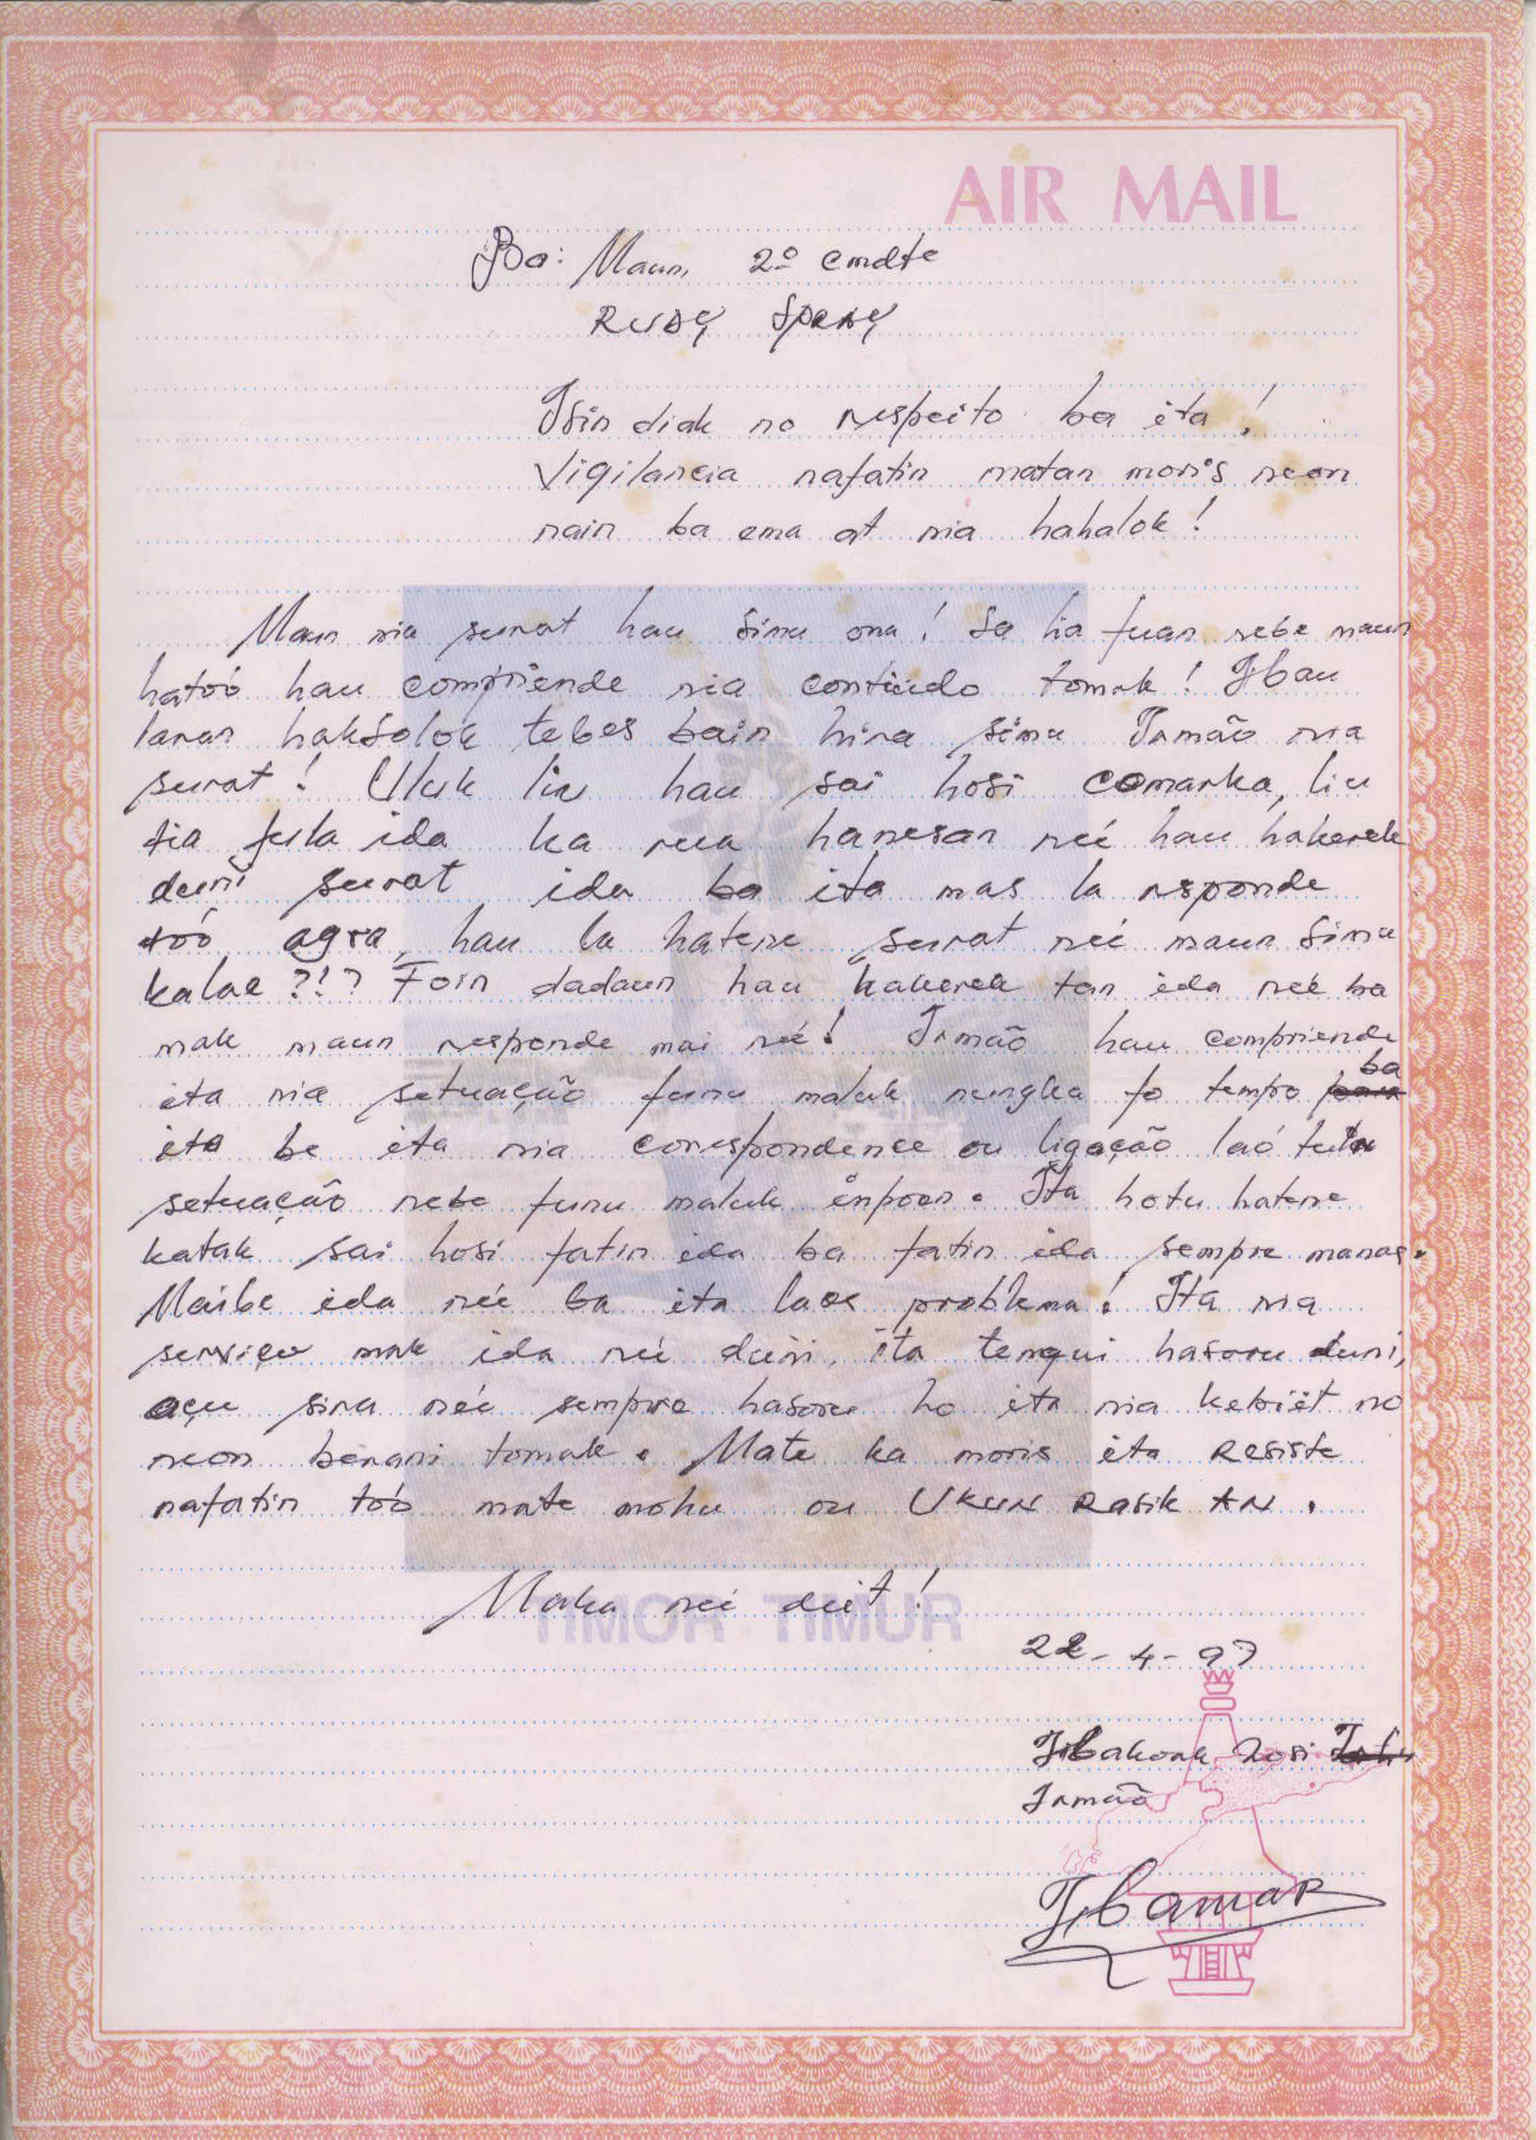 AIR MAIL
Ba: Maun, 2º cmdte
RUDY SPERY
Isin diak no respeito ba ita!
Vigilancia nafatin matan moris neon
nain ba ema at nia hahalok!
Maun nia surat hau simu ona! Sa lia fuan nebe maun
hatoó hau compriende nia contiudo tomak! Hau
laran haksolok tebes bain hira simu Irmão nia
surat! Uluk liu hau sai hosi comarka, liu
tia fula ida ka rua hanesan neé hau hakerek
duni surat ida ba ita mas la responde
toó agra, hau la hatene surat neé maun simu
kalae?!? Foin dadaun hau hakerek tan ida neé ba
mak maun responde mai neé! Irmão hau compriende
ita nia setuação funu maluk nungka fo tempo ba
ita be ita nia correspondence ou ligação laó tuir
setuação nebe funu maluk inpoen. Ita hotu hatene
katak sai hosi fatin ida ba fatin ida sempre manas.
Maibe ida neé ba ita laos problema! Ita nia
serviçu mak ida neé duni, ita tenqui hasoru duni,
açu sira neé sempre hasoru ho ita nia kebiit no
neon berani tomak. Mate ka moris ita resiste
nafatin toó mate mohu ou UKUN Rasik AN.
Maka neé deit!
TIMOR TIMUR
22-4-97
Hakoak hosi
Irmão